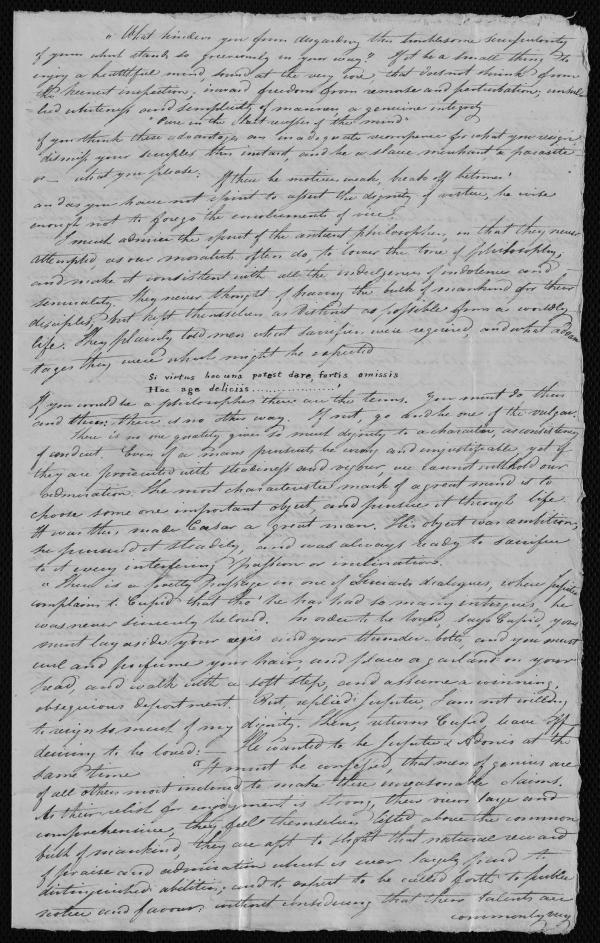 "What hinders you from disgarding this troublesome scrupulosity
of yours which stands so grievously in your way?" If it be a small thing to
enjoy a healthful mind, sound at the very core, that does not shrink from
the keenest inspection; inward freedom from remorse and perturbation; unsul-
lied whiteness and simplicity of manners; a genuine integrity
"Pure in the last recesses of the mind"
if you think these advantages an inadequate recompense for what you resign,
dismiss your scruples this instant, and be a slave merchant, a parasite
or — what you please. If these be motives weak, break off betimes!
and as you have not spirit to assert the dignity of virtue, be wise
enough not to forego the emoluments of vice.
I much admire the spirit of the antient philosophers, in that they never
attempted as our moralists often do, to lower the tone of philosophy,
and make it consistent with all the indulgences of indolence and
sensuality. They never thought of having the bulk of mankind for their
disciples; but kept themselves as distinct as possible from a worldly
life. They plainly told men what sacrifices were required, and what advan
tages they were which might be expected
Si virtus hoc una potest dare, fortis omissis
Hoc age deliciis..................'
If you would be a philosopher these are the terms. You must do thus
and thus: there is no other way. If not, go and be one of the vulgar.
There is no one quality gives so much dignity to a character, as consistency
of conduct. Even if a mans pursuits be wrong and unjustifiable, yet if
they are prosecuted with steadiness and vigour, we cannot withhold our
admiration. The most characteristic mark of a great mind is to
choose some one important object, and pursue it through life.
It was this made Caesar a great man. His object was ambition;
he pursued it steadily, and was always ready to sacrifice
to it every interfering passion or inclination.
"There is a pretty passage in one of Lucian's dialogues, where Jupiter
complains to Cupid that tho' he has had so many intrigues, he
was never sincerely beloved. In order to be loved, says Cupid, you
must lay aside your aegis and your thunder-bolts, and you must
curl and perfume your hair, and place a garland on your
head, and walk with a soft step, and assume a winning,
obsequious deportment. But, replied Jupiter, I am not willing
to resign so much of my dignity. Then, returns Cupid, leave off
desiring to be loved: — He wanted to be Jupiter & Adonis at the
same time "It must be confessed, that men of genius are
of all others most inclined to make these unreasonable claims.
As their relish for enjoyment is strong, their views large and
comprehensive, they feel themselves lifted above the common
bulk of mankind, they are apt to slight that natural reward
of praise and admiration which is ever largely paid to
distinguished abilities; and to expect to be called forth to public
notice and favour: without considering that their talents are
commonly very